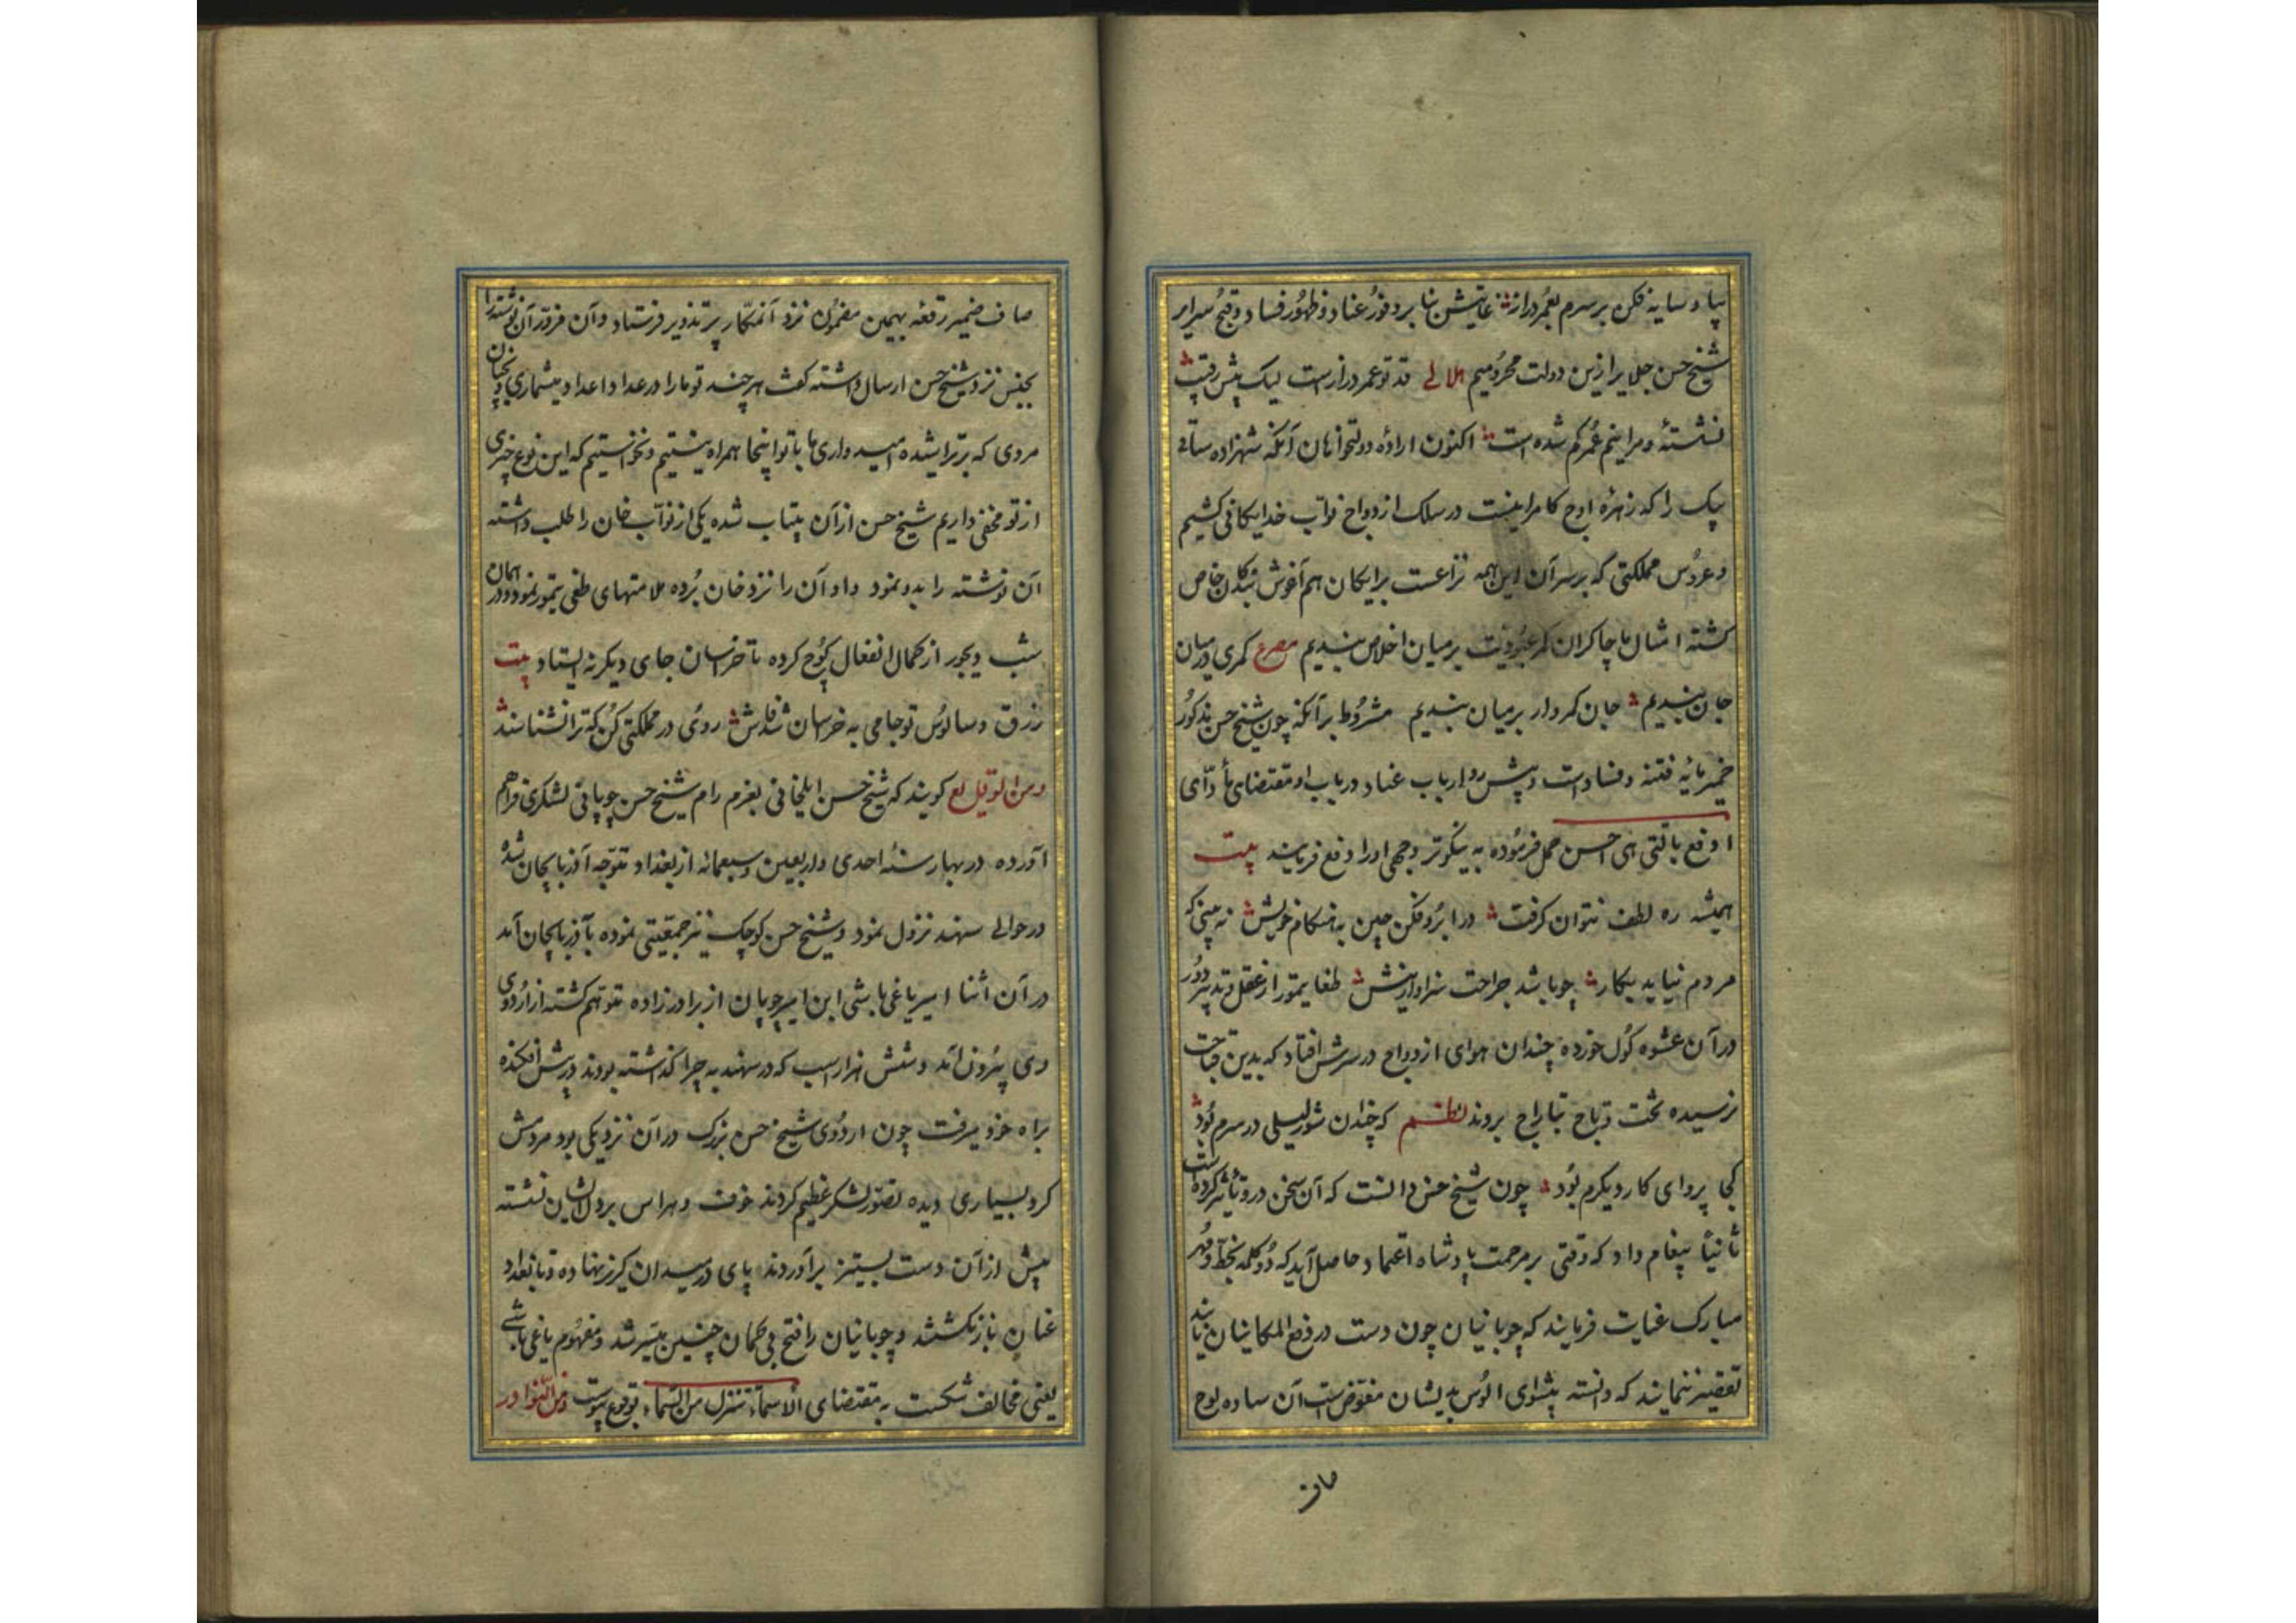 بیا و سایه فکن بر سرم بعمر دراز غایتش بنا بر وفور عناد و ظهور فساد و قبح سرایر
شیخ حسن جلایر ازین دولت محرومیم هلالی قد تو عمر درازست لیک پیش رقیب
نشسته و مرا نیم عمر کم شده است اکنون اراده دولتخواهان آنکه شهزاده ساتی
بیک را که زهره اوج کامرانیست در سلک ازدواج نواب خدایکانی کشیم
و عروس مملکتی که بر سر آن این همه نزاعست برایکان هم آغوش بندکان خاص
کشته امثال ما چاکران کمر عبودیت بر میان اخلاص بندیم مصرع کمری در میان
جان بندیم جان کمروار بر میان بندیم مشروط بر آنکه چون شیخ حسن مذکور
خمیر مایه فتنه و فساد است و پیش رو ارباب عناد در باب او مقتضای
ادفع بالتی هی احسن حمل فرموده به نیکوتر وجهی او را دفع فرمایند بیت
همیشه ره لطف نتوان کرفت در ابرو فکن چین به هنکام خویش نه بینی که
مردم نیاید بکار چو باشد جراحت سزاوار نیش طغایتمور از عقل و تدبیر دور
در آن عشوه کول خورده چندان هوای ازدواج در سرش افتاد که بدین قباحت
نرسیده تخت و تاج بتاراج بردند نظم که چندان شور لیلی در سرم بود
کجا پروای کار دیکرم بود چون شیخ حسن دانست که آن سخن درو تأثیر کرده است
ثانیا پیغام داد که وقتی بر مرحمت پادشاه اعتماد حاصل آید که دو کلمه بخط و مهر
مبارک عنایت فرمایند که چوبانیان چون دست در دفع ایلکانیان یابند
تقصیر ننمایند که دانسته پیشوای الوس بدیشان مفوض است آن ساده لوح
صاف
صاف ضمیر رقعه بهمین مضمون نزد آنمکار پر تذویر فرستاد و آن مزور آن نوشته را
بجنس نزد شیخ حسن ارسال داشته کفت هر چند تو ما را در عداد اعداد میشماری و بخیان
مردی که بر تراشیده امیدواری ها با تو اینجا همراه نیستیم و نخواستیم که این نوع چیزی
از تو مخفی داریم شیخ حسن از آن بیتاب شده یکی از نواب خان را طلب داشته
آن نوشته را بدو نمود و او آن را نزد خان برده ملامتهای طغی تیمور نمود و در همان
شب دیجور از کمال انفعال کوچ کرده تا خراسان جای دیکر نه ایستاد بیت
زرق و سالوس تو جامی به خراسان شد فاش روی در مملکتی کن که ترا نشناسند
و من الوقایع کویند که شیخ حسن ایلخانی بعزم رام شیخ حسن چوپانی لشکری فراهم
آورده در بهار سنه احدی و اربعین و سبعمائه از بغداد متوجه آذربایجان شد
در حوالی سهند نزول نمود و شیخ حسن کوچک نیز جمعیتی نموده بآذربایجان آمد
در آن اثنا امیر یاغی باشی ابن امیر چوپان از برادرزاده متوهم کشته از اردوی
وی بیرون آمد و شش هزار اسب که در سهند به چرا کذاشته بودند در پیش افکنده
براه خود میرفت چون اردوی شیخ حسن بزرک در آن نزدیکی بود مردمش
کرد بسیاری دیده تصور لشکر عظیم کردند خوف و هراس بر دل ایشان نشسته
پیش از آن دست بستیز برآوردند پای در میدان کریز نهاده و تا بغداد
عنان باز نکشیدند و چوبانیان را فتح بی کمان چنین میسر شد و مفهوم یاغی باشی
یعنی مخالف شکست به مقتضای الاسماء تنزل من السماء بوقوع پیوست و من النوادر